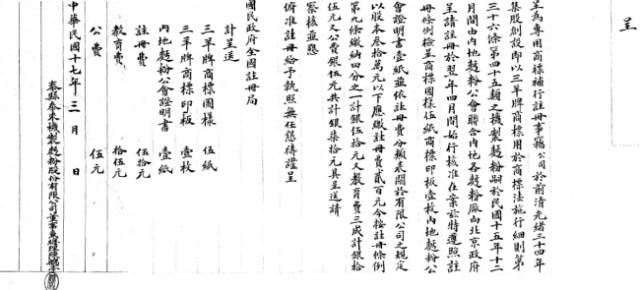 呈
呈為專用商標補行註冊事竊公司於前清光緒三十四年
集股創設即以三羊牌商標用於商標法施行細則第
三十六條第四十五類之機製麵粉嗣於民國十五年十二
月間由內地麵粉公會聯合內地各麵粉廠向北京政府
呈請註冊於翌年四月間始行核准在案茲特遵照註
冊條例檢呈商標圖樣伍紙商標印板壹枚內地麵粉公
會證明書壹紙並依註冊費分類表關於有限公司之規定
以股本叁拾萬元以下應繳註冊費貳百元今按註冊條例
第九條繳納四分之一計銀伍拾元又教育費三成計銀拾
伍元又公費銀伍元共計銀柒拾元具呈送請
察核並懇
俯准註冊給予執照無任德禱謹呈
國民政府全國註冊局
計呈送
三羊牌商標圖樣 伍紙
三羊牌商標印板 壹枚
內地麵粉公會證明書 壹紙
註冊費 伍拾元
教育費 拾伍元
公費 伍元
中華民國十七年三月 日
泰縣泰來機製麵粉股份有限公司董事